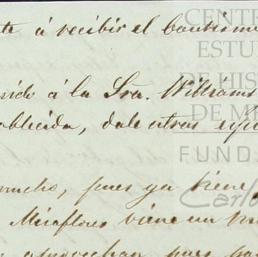 á recibir el bautismo
á la Sra. Williams
dale otras
mucho, pues ya tiene
Miraflores viene un
aprovechar pues
CENTR
ESTU
DE HIS
DE M
FUND
Carlo